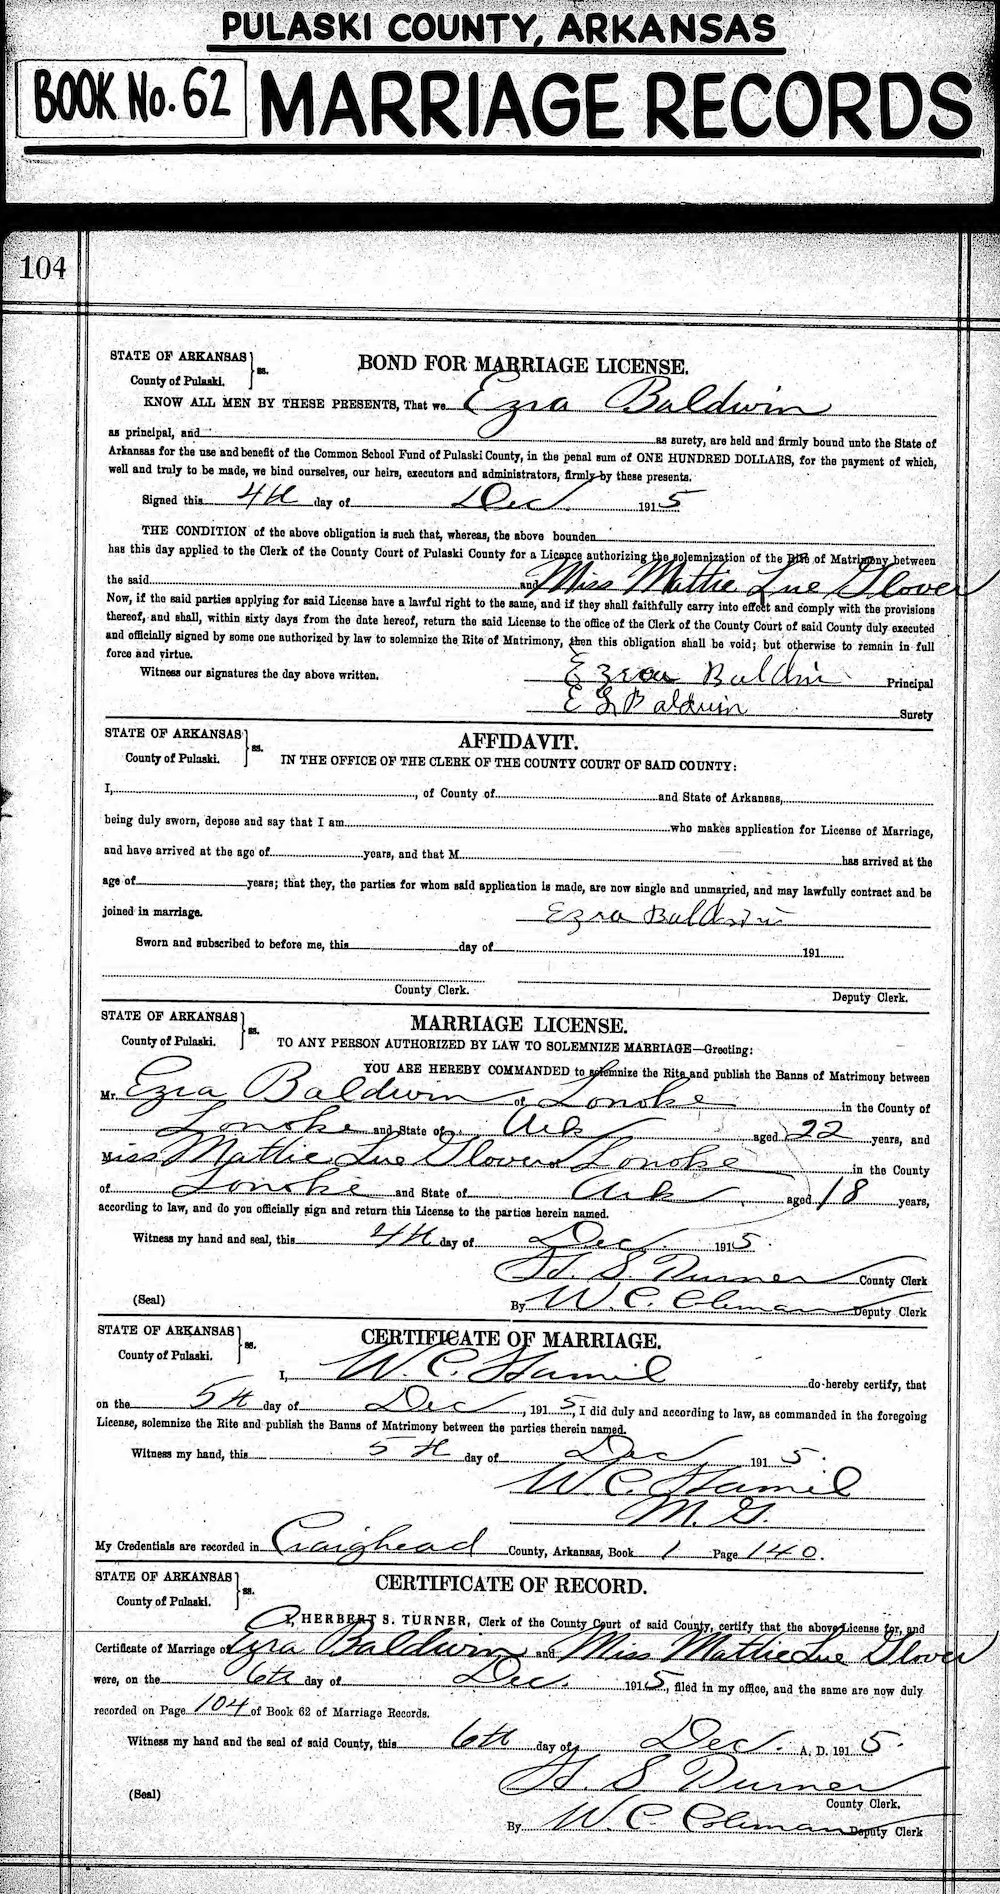 PULASKI COUNTY, ARKANSAS
BOOK No. 62
MARRIAGE RECORDS
104
STATE OF ARKANSAS
County of Pulaski.
ss.
BOND FOR MARRIAGE LICENSE.
KNOW ALL MEN BY THESE PRESENTS, That we Ezra Baldwin
as principal, and as surety, are held and firmly bound unto the State of
Arkansas for the use and benefit of the Common School Fund of Pulaski County, in the penal sum of ONE HUNDRED DOLLARS, for the payment of which,
well and truly to be made, we bind ourselves, our heirs, executors and administrators, firmly by these presents.
Signed this 4th day of Dec. 1915
THE CONDITION of the above obligation is such, that, whereas, the above bounden
has this day applied to the Clerk of the County Court of Pulaski County for a Licence authorizing the solemnization of the Rite of Matrimony between
the said and Miss Mattie Lue Glover
Now, if the said parties applying for said License have a lawful right to the same, and if they shall faithfully carry into effect and comply with the provisions
thereof, and shall, within sixty days from the date hereof, return the said License to the office of the Clerk of the County Court of said County duly executed
and officially signed by some one authorized by law to solemnize the Rite of Matrimony, then this obligation shall be void; but otherwise to remain in full
force and virtue.
Witness our signatures the day above written. Ezra Baldwin Principal
E L Baldwin Surety
STATE OF ARKANSAS
County of Pulaski.
ss.
AFFIDAVIT.
IN THE OFFICE OF THE CLERK OF THE COUNTY COURT OF SAID COUNTY:
I, , of County of and State of Arkansas,
being duly sworn, depose and say that I am who makes application for License of Marriage,
and have arrived at the age of years, and that M has arrived at the
age of years; that they, the parties for whom said application is made, are now single and unmarried, and may lawfully contract and be
joined in marriage. Ezra Baldwin
Sworn and subscribed to before me, this day of 191
County Clerk. Deputy Clerk.
STATE OF ARKANSAS
County of Pulaski.
ss.
MARRIAGE LICENSE.
TO ANY PERSON AUTHORIZED BY LAW TO SOLEMNIZE MARRIAGE—Greeting:
YOU ARE HEREBY COMMANDED to solemnize the Rite and publish the Banns of Matrimony between
Mr. Ezra Baldwin of Lonoke in the County of
Lonoke and State of Ark aged 22 years, and
Miss Mattie Lue Glover Lonoke in the County
of Lonoke and State of Ark aged 18 years,
according to law, and do you officially sign and return this License to the parties herein named.
Witness my hand and seal, this 4th day of Dec. 1915.
H. S Turner County Clerk
(Seal) By W. C. Coleman Deputy Clerk
STATE OF ARKANSAS
County of Pulaski.
ss.
CERTIFICATE OF MARRIAGE.
I, W. C. Hamil do hereby certify, that
on the 5th day of Dec , 1915, I did duly and according to law, as commanded in the foregoing
License, solemnize the Rite and publish the Banns of Matrimony between the parties therein named.
Witness my hand, this 5th day of Dec 1915.
W. C. Hamil
M. G.
My Credentials are recorded in Craighead County, Arkansas, Book 1 Page 140.
STATE OF ARKANSAS
County of Pulaski.
ss.
CERTIFICATE OF RECORD.
I, HERBERT S. TURNER, Clerk of the County Court of said County, certify that the above License for, and
Certificate of Marriage of Ezra Baldwin and Miss Mattie Lue Glover
were, on the 6th day of Dec. 1915, filed in my office, and the same are now duly
recorded on Page 104 of Book 62 of Marriage Records.
Witness my hand and the seal of said County, this 6th day of Dec. A. D. 1915.
H. S Turner
(Seal) County Clerk.
By W. C. Coleman Deputy Clerk